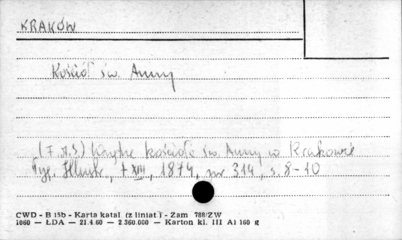 KRAKÓW
Kościół św. Anny
(F.A.S.) Krypta kościoła św. Anny w Krakowie
Tyg. Illustr., t XIII, 1874, nr 314, s. 8-10
CWD - B 15b - Karta katal (z liniat) - Zam 788/ZW
1060 - ŁDA - 21.4.60 - 2 360.000 - Karton kl. III A1 160 g